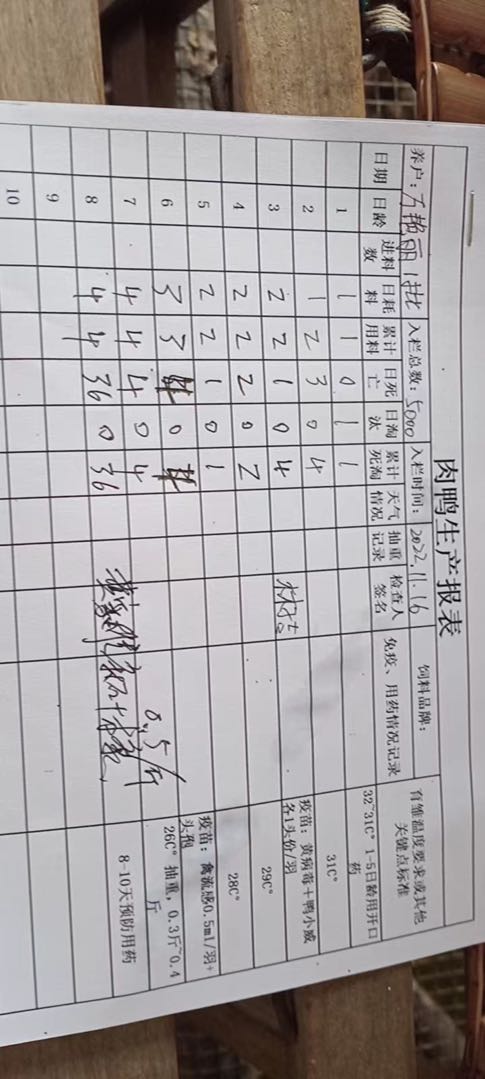 肉鸭生产报表
养户: 方艳丽 1批 入栏总数: 5000 入栏时间: 2022.11.16 饲料品牌:
日期 日龄 进料数 日耗料 累计用料 日死亡 日淘汰 累计死淘 天气情况 抽重记录 检查人签名 免疫、用药情况记录 育雏温度要求或其他关键点标准
1 1 1 0 1 1 32~31C° 1-5日龄用开口药
2 1 2 3 0 4 31C°
3 2 2 1 0 4 疫苗: 黄病毒+鸭小威各1头份/羽
4 2 2 2 0 2 29C°
5 2 2 1 0 1 28C°
6 3 3 0 疫苗: 禽流感0.5ml/羽+头孢
7 4 4 4 0 4 0.5/斤 26C° 抽重, 0.3斤~0.4斤
8 4 4 36 0 36 8-10天预防用药
9
10